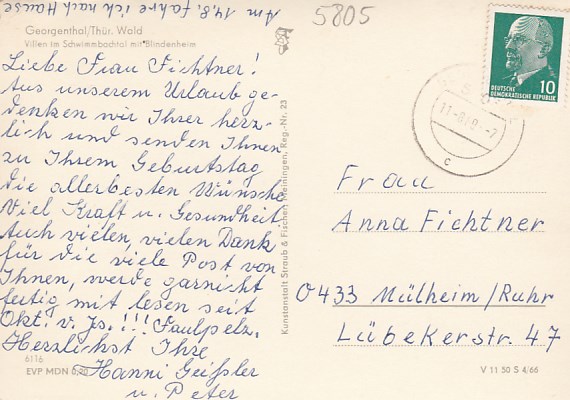 Am 14.8. fahre ich nach Hause
5805
Georgenthal/Thür. Wald
Villen im Schwimmbachtal mit Blindenheim
Liebe Frau Fichtner!
Aus unserem Urlaub ge-
denken wir Ihrer herz-
lich und senden Ihnen
zu Ihrem Geburtstag
die allerbesten Wünsche
Viel Kraft u. Gesundheit
Auch vielen, vielen Dank
für die viele Post von
Ihnen, werde garnicht
fertig mit lesen seit
Okt. v. Js.!!! Faulpelz.
Herzlichst Ihre
Hanni Geißler
u. Peter
6116
EVP MDN 0,20
Kunstanstalt Straub & Fischer Meiningen, Reg.-Nr. 23
10
DEUTSCHE
DEMOKRATISCHE REPUBLIK
c
Frau
Anna Fichtner
0433 Mülheim/Ruhr
Lübekerstr. 47
V 11 50 S 4/66